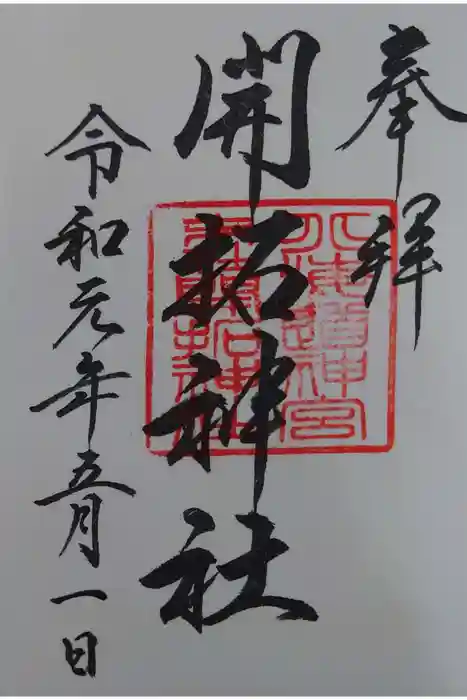 奉拝
開拓神社
令和元年五月一日
北海道神宮
末廣開拓神社